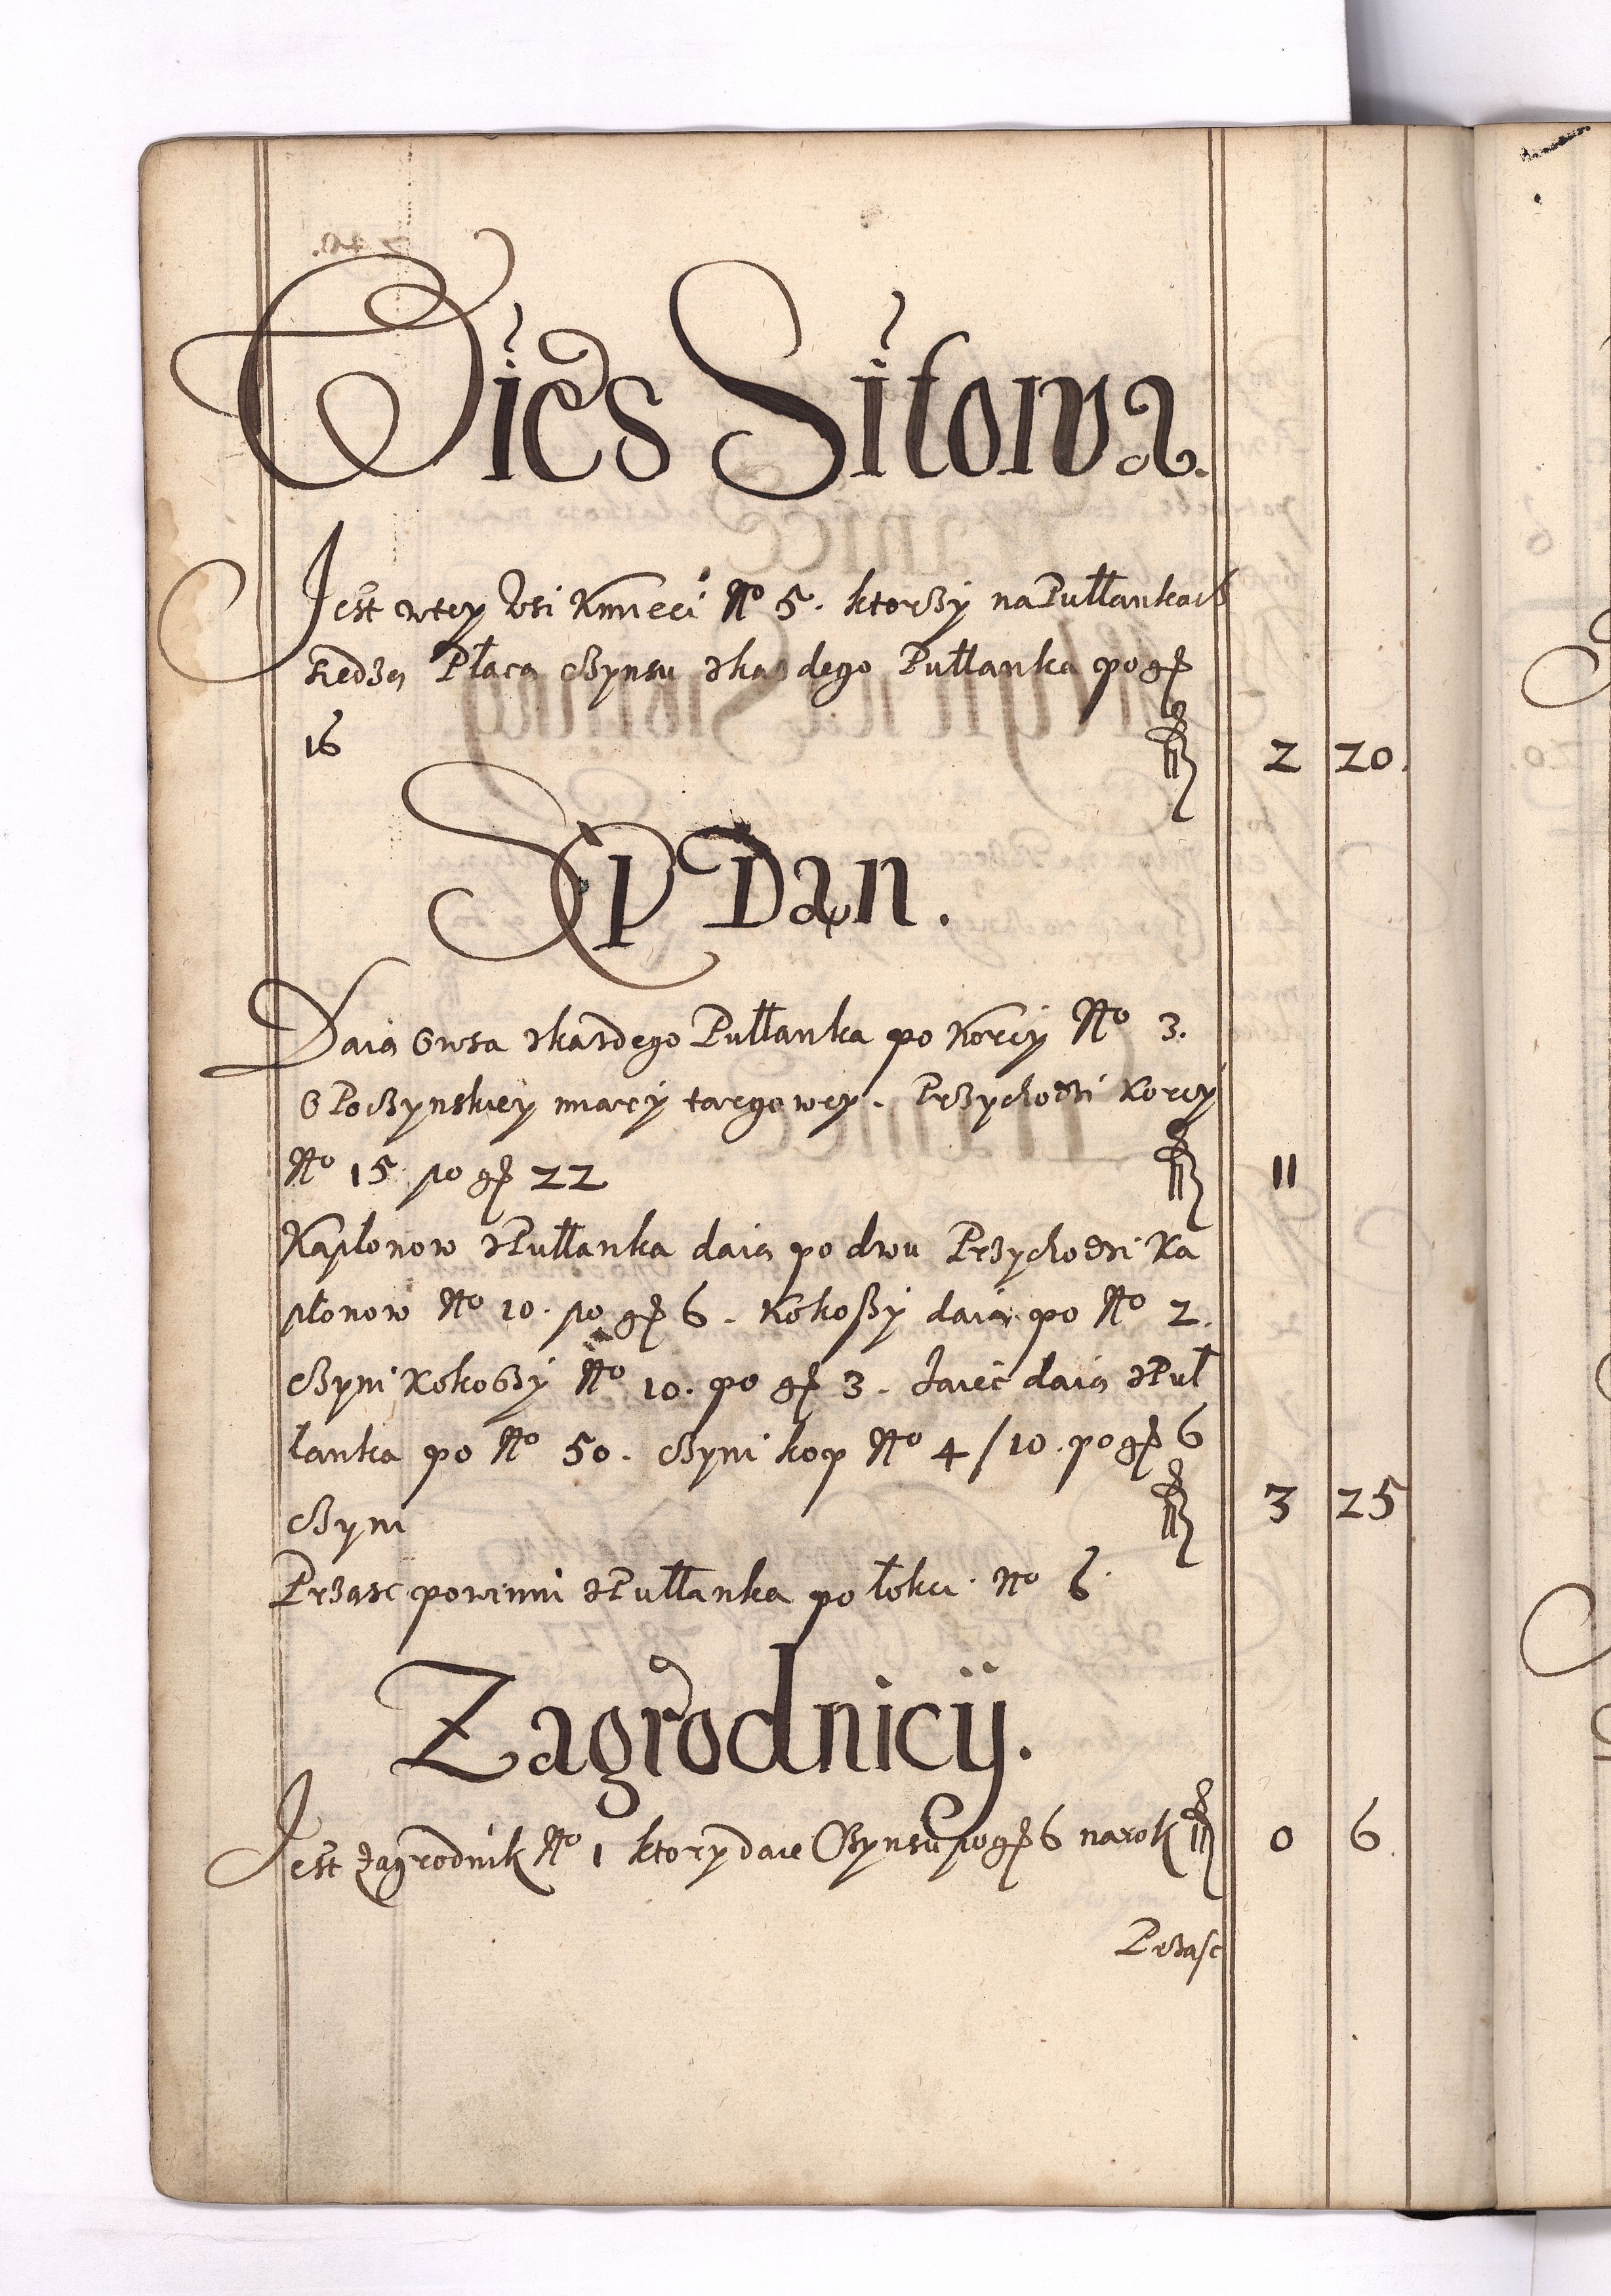 Wies Sitowa.
Jest wtey Wsi Kmieci No 5. ktorzy na Pułłankach
siedzą Płacą Czynsu zkazdego Pułłanka po gr
16 fl 2 20.
Sep Dan.
Daią Owsa zkazdego Pułłanka po Korcy No 3.
Opoczynskiey miary targowey. Przychodzi Korcy
No 15 po gr 22 fl 11
Kapłonow zPułłanka daią po dwu Przychodzi Ka
płonow No 10. po gr 6. Kokoszy daią po No 2.
Czyni Kokoszy No 10. po gr 3. Jaiec daią zPuł
łanka po No 50. Czyni kop No 4/10. po gr 6
Czyni fl 3 25
Przasc powinni zPułłanka po łokci No 6.
Zagrodnicy.
Jest Zagrodnik No 1 ktory daie Czynsu po gr 6 narok fl 0 6.
Przasc